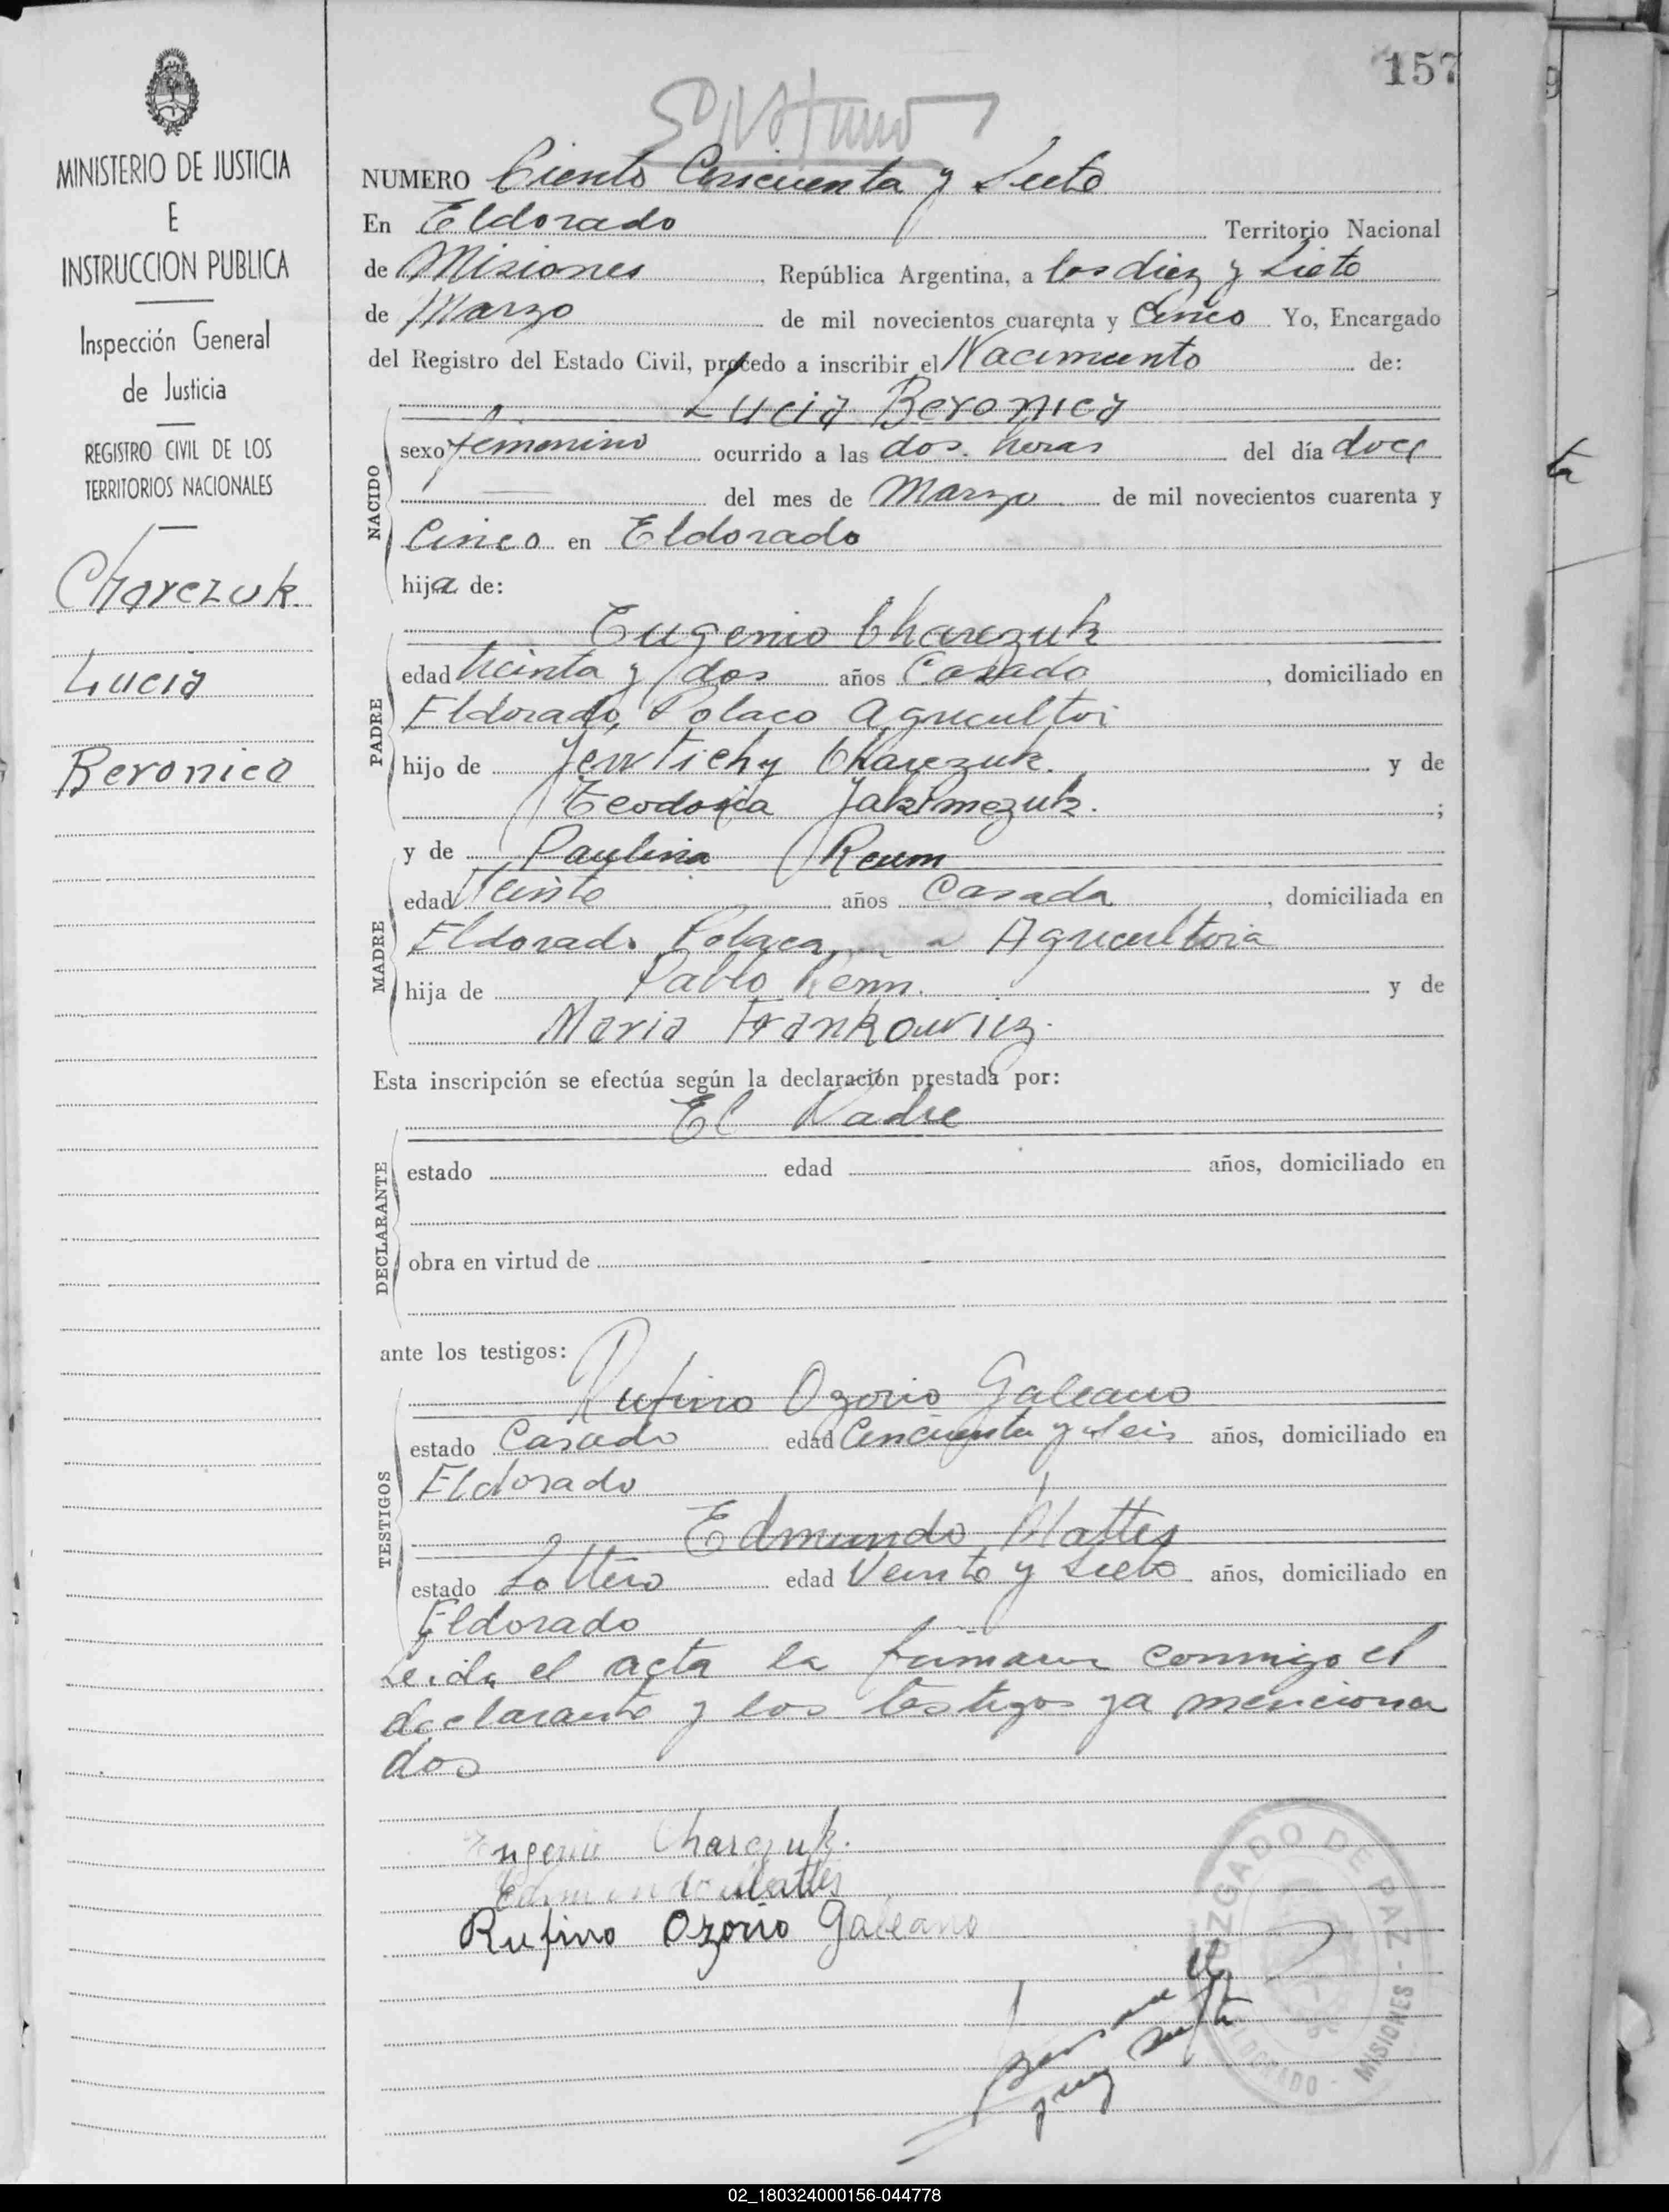 157
NUMERO Ciento Cincuenta y Siete
En Eldorado Territorio Nacional
de Misiones, República Argentina, a los diez y Siete
de Marzo de mil novecientos cuarenta y Cinco Yo, Encargado
del Registro del Estado Civil, procedo a inscribir el Nacimiento de:
Lucia Beronica
sexo femenino ocurrido a las dos horas del día doce
del mes de Marzo de mil novecientos cuarenta y
Cinco en Eldorado
hija de:
Eugenio Charczuk
edad treinta y dos años Casado, domiciliado en
Eldorado, Polaco Agricultor
hijo de Jewtichy Charczuk. y de
Teodosia Jakimczuk. ;
y de Paulina Reum
edad Veinte años Casada, domiciliada en
Eldorado Polaca Agricultora
hija de Pablo y de
Maria Frankowicz.
Esta inscripción se efectúa según la declaración prestada por:
El Padre
estado edad años, domiciliado en
obra en virtud de
ante los testigos:
Rufino Ozorio Galeano
estado Casado edad Cincuenta y Seis años, domiciliado en
Eldorado
Edmundo Mattes
estado Soltero edad Veinte y Siete años, domiciliado en
Eldorado
Leida el acta la firman conmigo el
declarante y los testigos ya menciona
dos
Eugenio Charczuk.
Edmundo Mattes
Rufino Ozorio Galeano
NACIDO
PADRE
MADRE
DECLARANTE
TESTIGOS
MINISTERIO DE JUSTICIA
E
INSTRUCCION PUBLICA
Inspección General
de Justicia
REGISTRO CIVIL DE LOS
TERRITORIOS NACIONALES
Charczuk
Lucia
Beronica
JUZGADO DE PAZ - ELDORADO - MISIONES -
02_180324000156-044778